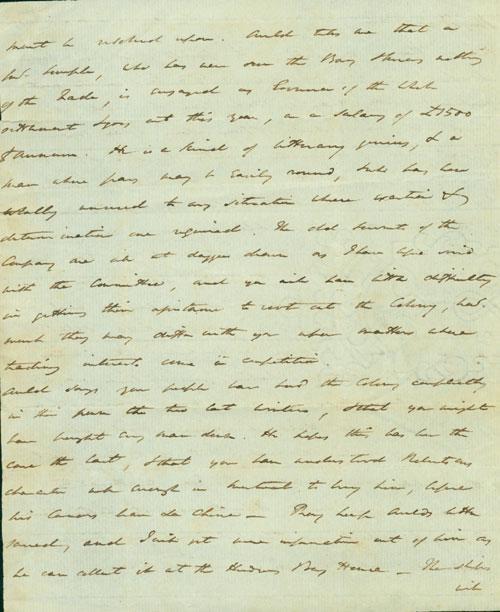 must be resolved upon. Auld tells me that a
Mr. Semple, who has never seen the Bay & knows nothing
of the Trade, is engaged as Governor of the whole
settlement & goes out this year, on a salary of £1500
P Annum. He is a kind of litterary genius, & a
man whose may be easily round, but has been
totally unused to any situation where exertion &
determination are required. The old servants of the
Company are all at daggers drawn as I have before said
with the Committee, and you will have little difficulty
in getting their assistance to root out the Colony, how
much they may differ with you upon matters where
trading interests come in competition.
Auld says your people have had the Colony completely
in their power the two last Winters, & that you might
have bought any man down. He hopes this has been the
case the last, & that you have understood Robertsons
character well enough in Montreal to buy him, before
his Canoes leave La Chine — Pray keep Aulds letter
secret, and I will get more information out of him as
he can collect it at the Hudsons Bay House — The Ships
will